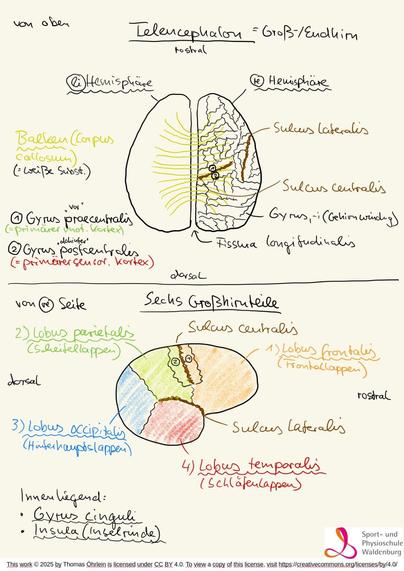 von oben
Telencephalon = Groß-/Endhirn
rostral
li Hemisphäre
re Hemisphäre
Sulcus lateralis
Balken (Corpus
callosum)
(= weiße Subst.)
Sulcus centralis
"vor"
1 Gyrus praecentralis
(= primärer mot. Kortex)
Gyrus, -i (Gehirnwindung)
"dahinter"
2 Gyrus postcentralis
(= primärer sensor. Kortex)
Fissura longitudinalis
dorsal
von re Seite
Sechs Großhirnteile
Sulcus centralis
2) Lobus parietalis
(Scheitellappen)
1) Lobus frontalis
(Frontallappen)
2 1
dorsal
rostral
3) Lobus occipitalis
(Hinterhauptslappen)
Sulcus lateralis
4) Lobus temporalis
(Schläfenlappen)
Innenliegend:
• Gyrus cinguli
• Insula (Inselrinde)
Sport- und
Physioschule
Waldenburg
This work © 2025 by Thomas Öhrlein is licensed under CC BY 4.0. To view a copy of this license, visit https://creativecommons.org/licenses/by/4.0/